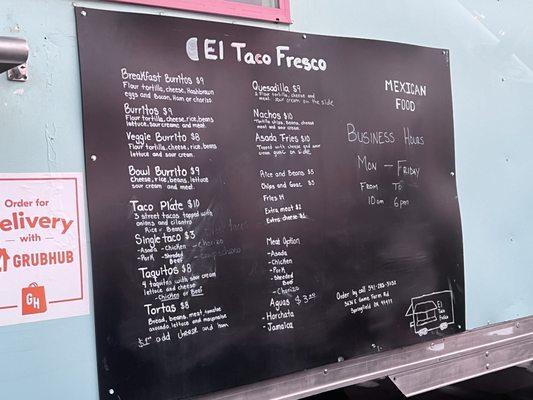 El Taco Fresco
Breakfast Burritos $9
Flour tortilla, cheese, Hashbrown
eggs and Bacon, Ham or chorizo
Burritos $9
Flour tortilla, cheese, rice, beans
lettuce, sour cream and meat.
Veggie Burrito $8
Flour tortilla, cheese, rice, beans
lettuce and sour cream.
Bowl Burrito $9
Cheese, rice, beans, lettuce
sour cream and meat.
Taco Plate $10
3 street tacos topped with
onions and cilantro
Rice & Beans
Single taco $3
-Asada -Chicken -chorizo
-Pork -Shredded
Beef
Taquitos $8
4 taquitos with sour cream
lettuce and cheese
-Chicken or Beef
Tortas $8
Bread, beans, meat, tomatoe
avocado, lettuce and mayonnaise
$1 add cheese and ham
Quesadilla $9
Flour tortilla, cheese and
meat. sour cream on the side
Nachos $10
Tortilla chips, beans, cheese
meat and sour cream.
Asada Fries $10
Topped with cheese and sour
cream guac on side.
Rice and Beans $5
Chips and Guac $5
Fries $4
Extra meat $2
Extra cheese $1
Meat Option
- Asada
- Chicken
- Pork
- Shredded
Beef
- Chorizo
Aguas $3.00
- Horchata
- Jamaica
MEXICAN
FOOD
BUSINESS HOURS
MON - FRIDAY
FROM TO
10am 6pm
Order by call 541-285-3032
Springfield OR 97477
El
Taco
Fresco
Order for
Delivery
with
GRUBHUB
GH